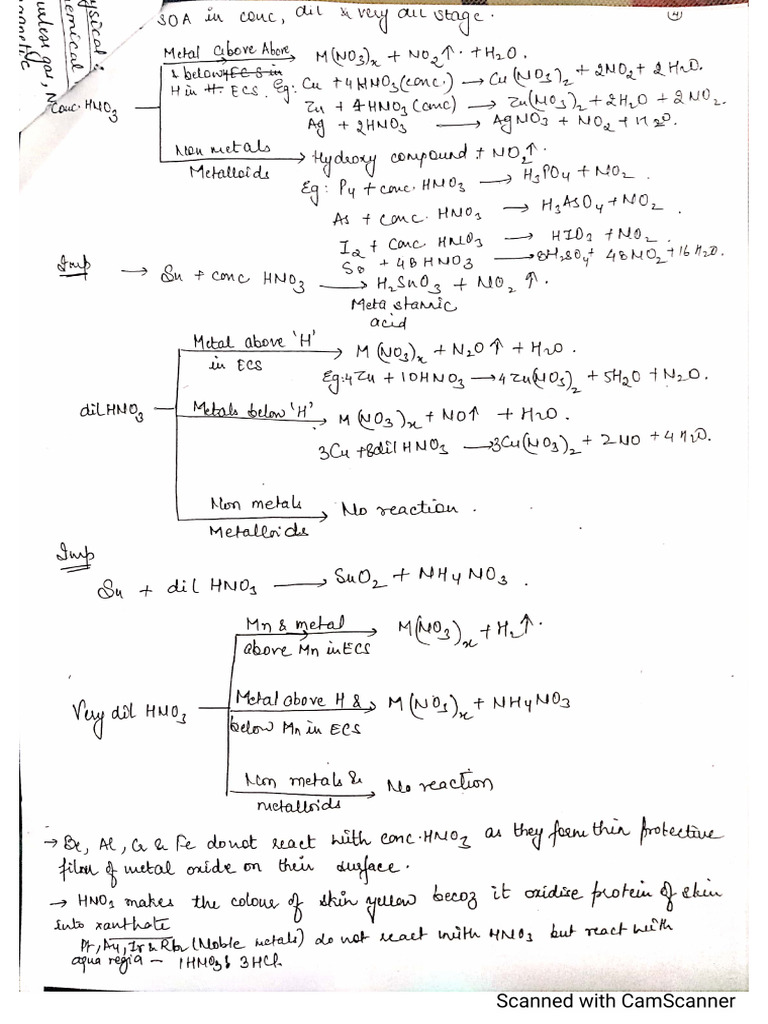 SOA in conc, dil & very dil stage.
ysical :
emical
urless gas, N
amagnetic
Metal above Above
& below ECS in
H in H ECS.
M(NO3)x + NO2↑ . +H2O.
Eg: Cu + 4HNO3(conc.) → Cu(NO3)2 + 2NO2 + 2H2O.
Zn + 4HNO3(conc) → Zn(NO3)2 + 2H2O + 2NO2.
Conc. HNO3
Ag + 2HNO3 → AgNO3 + NO2 + H2O.
Non metals
Metalloids
Hydroxy compound + NO2↑.
Eg: P4 + conc. HNO3 → H3PO4 + NO2.
As + conc. HNO3 → H3AsO4 + NO2.
I2 + conc HNO3 → HIO3 + NO2.
S8 + 48HNO3 → 8H2SO4 + 48NO2 + 16H2O.
Imp → Sn + conc HNO3 → H2SnO3 + NO2 ↑.
Meta stannic
acid
Metal above 'H'
in ECS
M(NO3)x + N2O↑ + H2O.
Eg:4Zn + 10HNO3 → 4Zn(NO3)2 + 5H2O + N2O.
dil HNO3
Metals below 'H'
M(NO3)x + NO↑ + H2O.
3Cu +8dil HNO3 → 3Cu(NO3)2 + 2NO + 4H2O.
Non metals
Metalloids
No reaction.
Imp
Sn + dil HNO3 → SnO2 + NH4NO3.
Mn & metal
above Mn in ECS
M(NO3)x + H2↑.
Very dil HNO3
Metal above H &
below Mn in ECS
M(NO3)x + NH4NO3
Non metals &
metalloids
No reaction
→ Be, Al, Cr & Fe donot react with conc.HNO3 as they form thin protective
film of metal oxide on their surface.
→ HNO3 makes the colour of skin yellow becoz it oxidise protein of skin
into xanthate
Pt, Au, Ir & Rh (Noble metals) do not react with HNO3 but react with
aqua regia - 1HNO3: 3HCl
Scanned with CamScanner